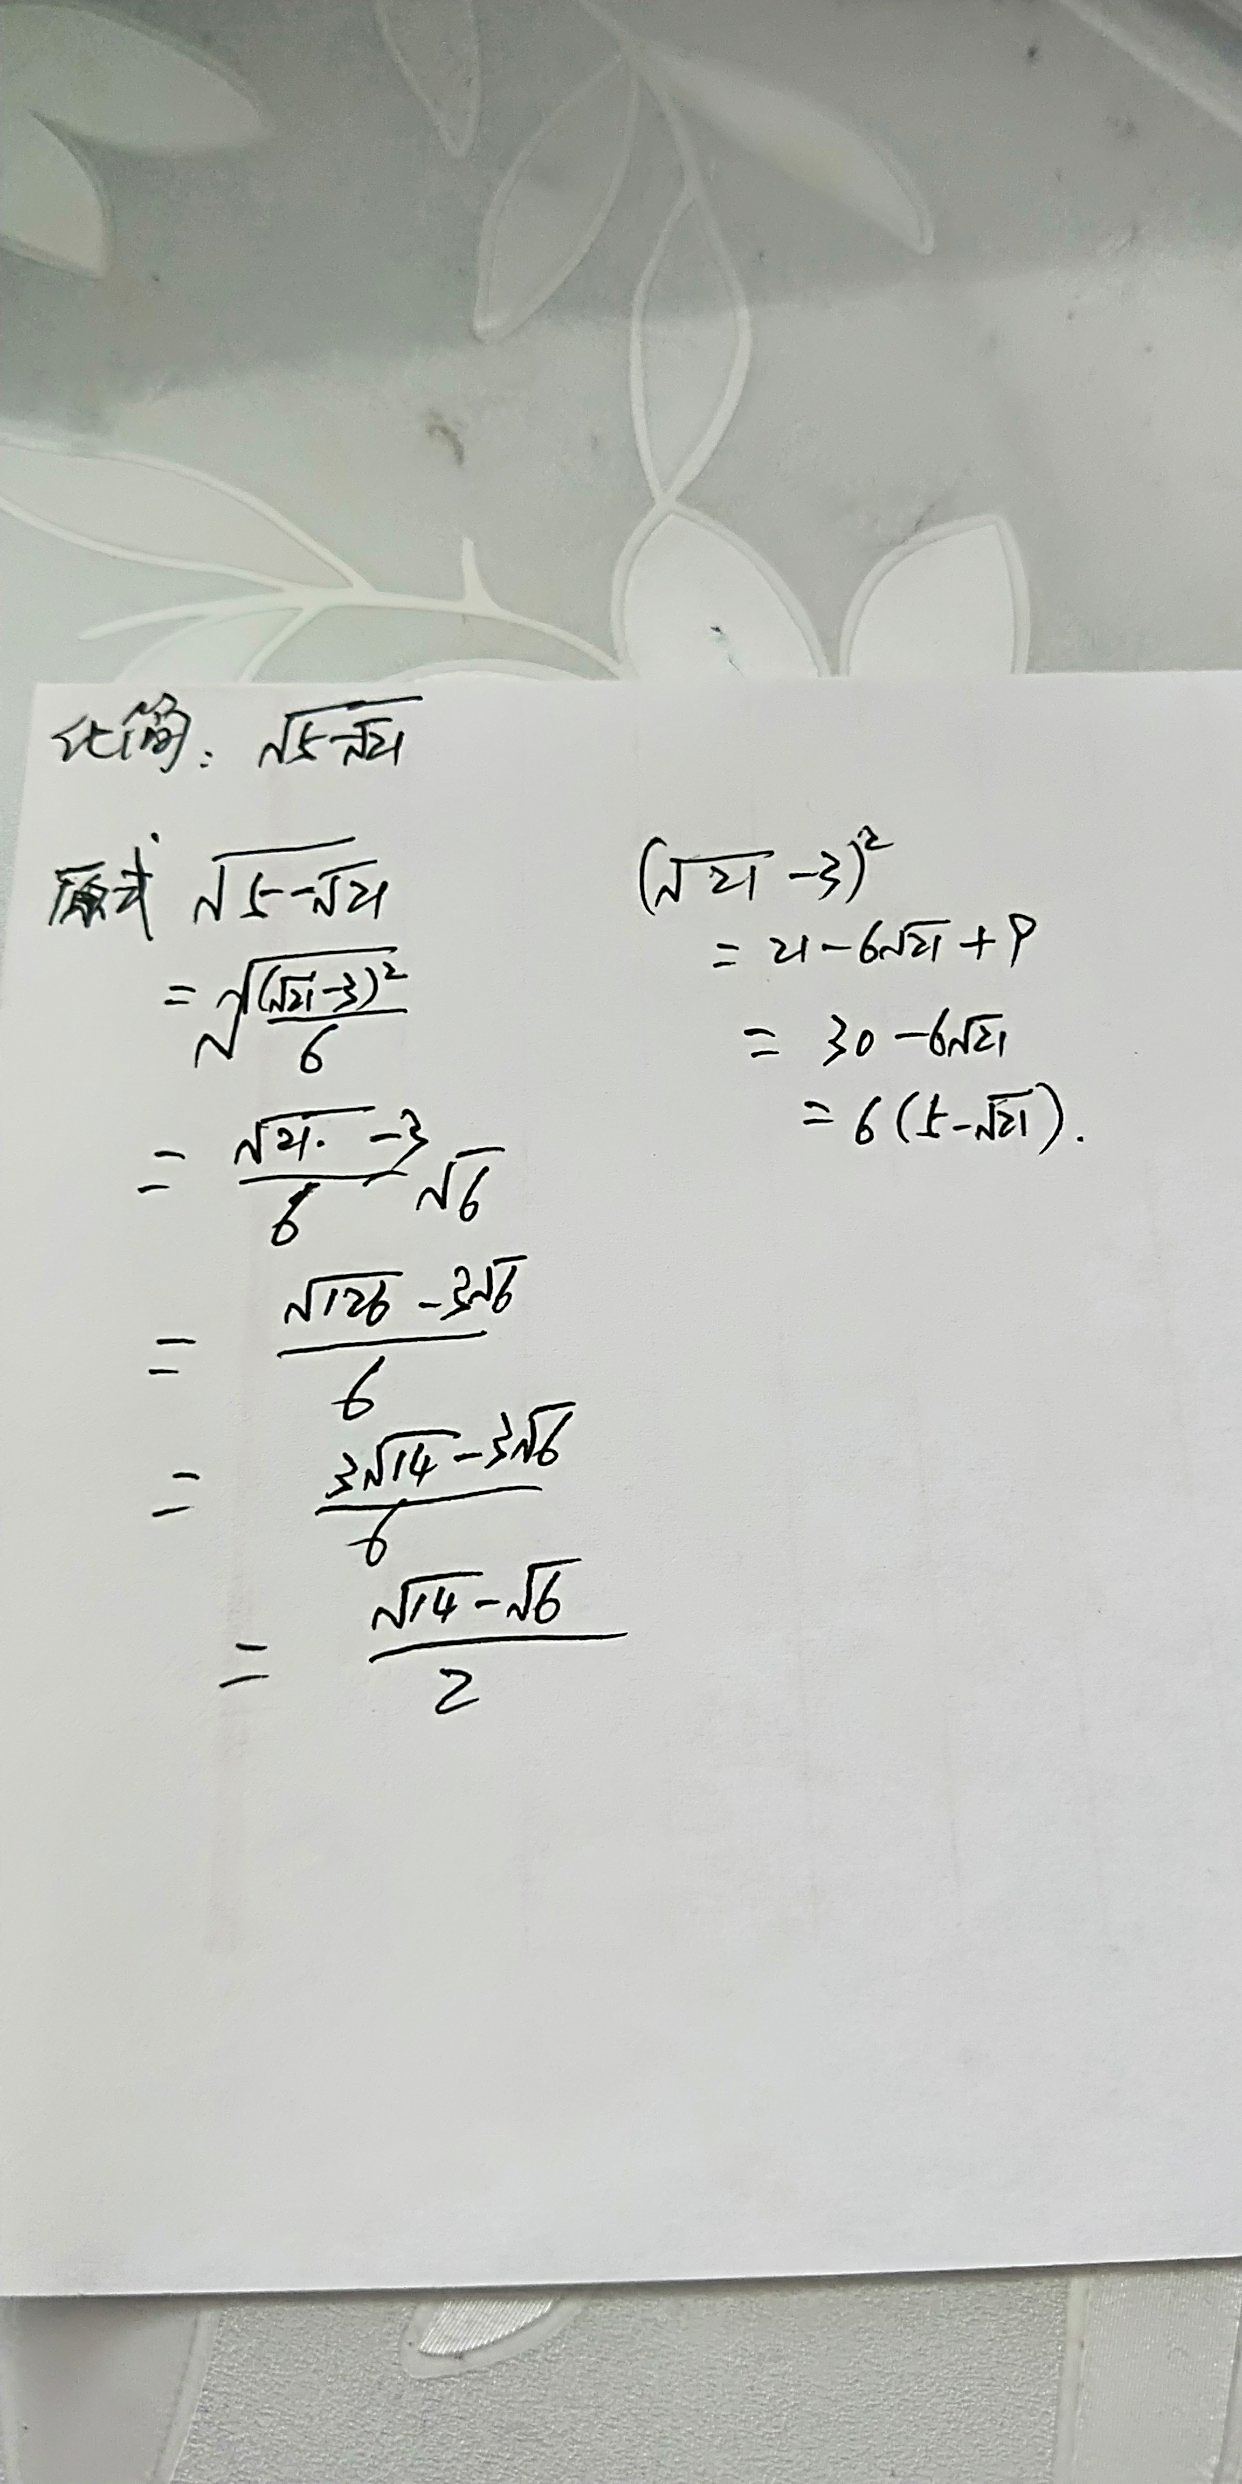 化简：√(5-√21)
原式 √(5-√21)
= √((√21-3)²/6)
= (√21-3)/6 √6
= (√126-3√6)/6
= (3√14-3√6)/6
= (√14-√6)/2
(√21-3)²
= 21-6√21+9
= 30-6√21
= 6(5-√21).